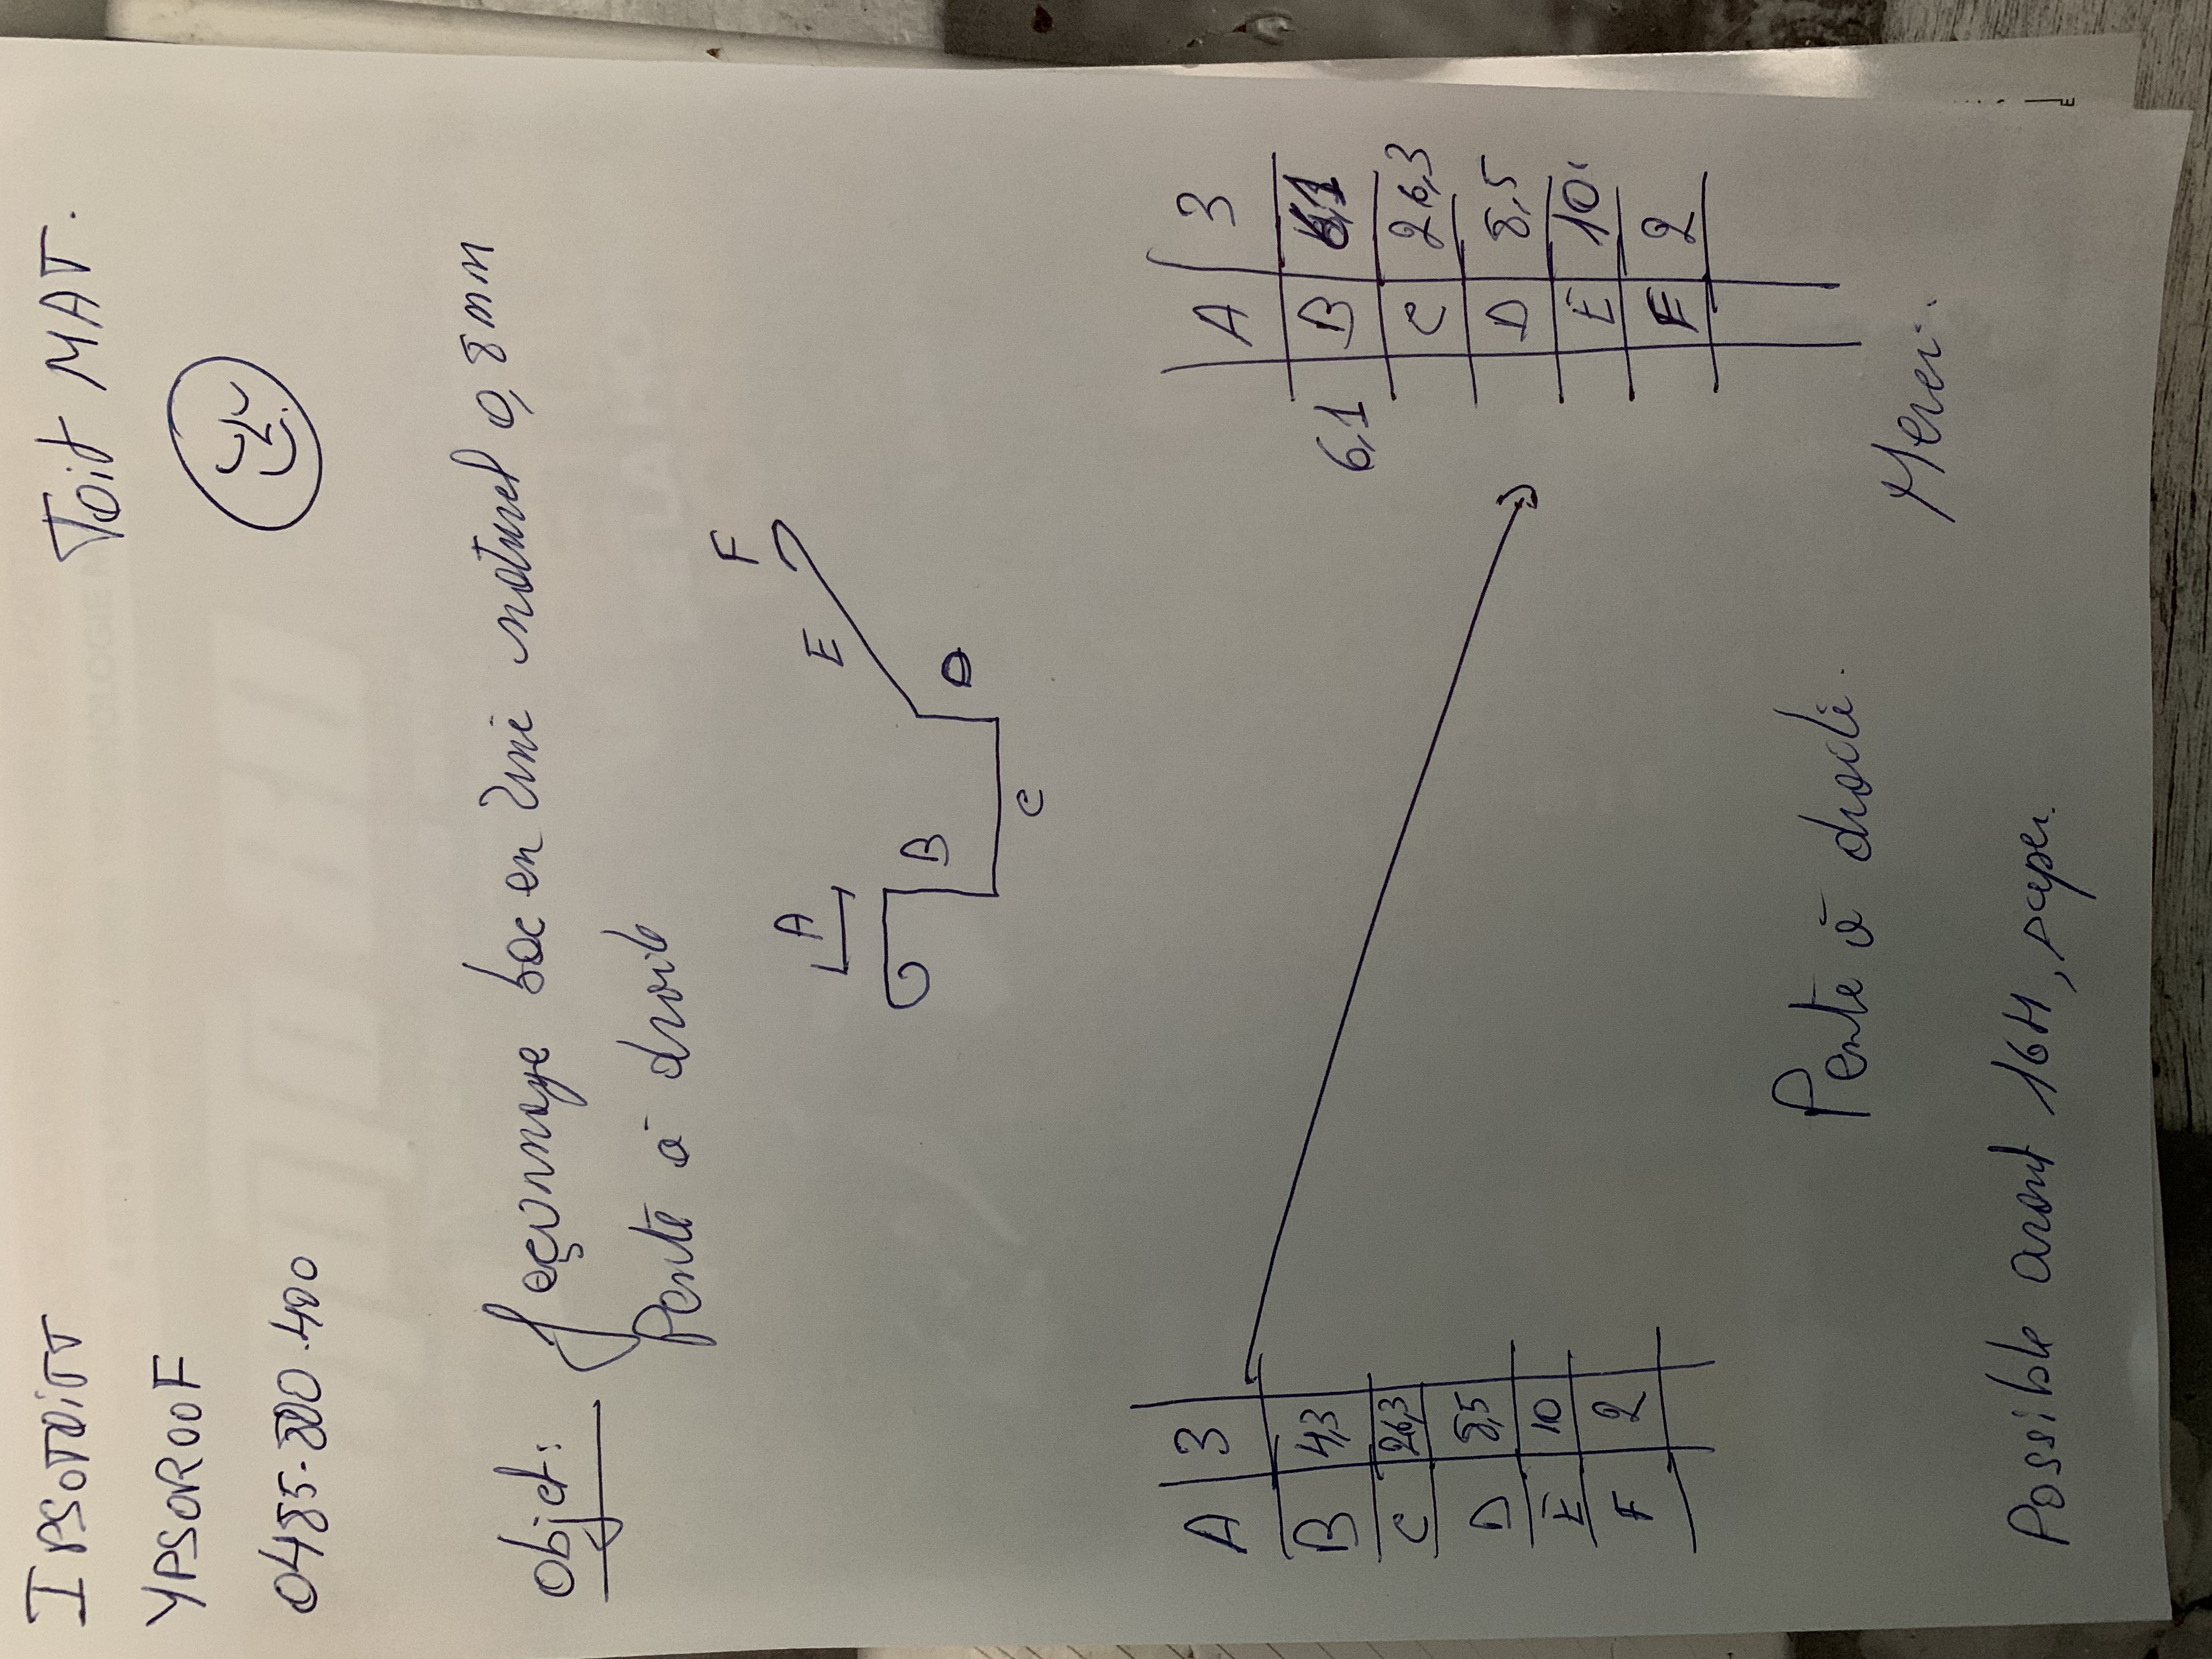 IPSOTOITT Toit MAT.
YPSOROOF
0485-800.400
Objet: façonnage bac en Zinc naturel 0,8mm
Pente à droite
A B C D E F
A 3
B 4,3
C 26,3
D 8,5
E 10
F 2
A 3
6,1 B 6,1
C 26,3
D 8,5
E 10
F 2
Pente à droite.
Merci.
Possible avant 16H, super.